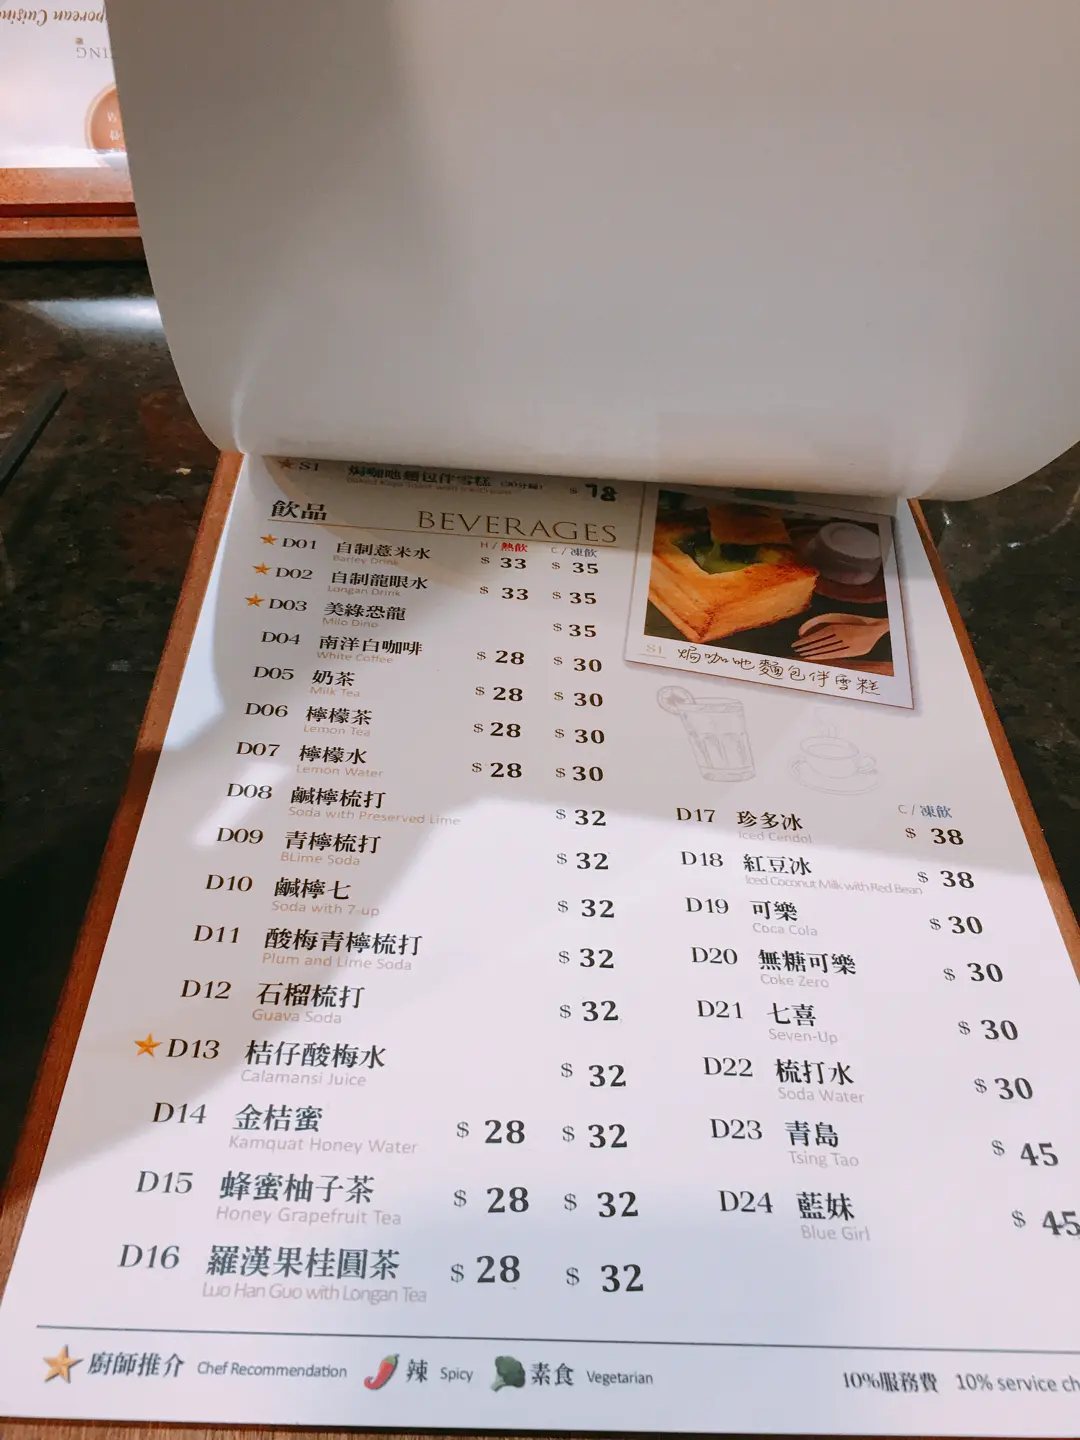 S1 焗咖吔麵包伴雪糕 (30分鐘) $ 78
Baked Kaya Toast with Ice Cream
飲品 BEVERAGES
H / 熱飲 C / 凍飲
D01 自制薏米水 $ 33 $ 35
Barley Drink
D02 自制龍眼水 $ 33 $ 35
Longan Drink
D03 美綠恐龍 $ 35
Milo Dino
D04 南洋白咖啡 $ 28 $ 30
White Coffee
D05 奶茶 $ 28 $ 30
Milk Tea
D06 檸檬茶 $ 28 $ 30
Lemon Tea
D07 檸檬水 $ 28 $ 30
Lemon Water
D08 鹹檸梳打 $ 32
Soda with Preserved Lime
D09 青檸梳打 $ 32
BLime Soda
D10 鹹檸七 $ 32
Soda with 7-up
D11 酸梅青檸梳打 $ 32
Plum and Lime Soda
D12 石榴梳打 $ 32
Guava Soda
D13 桔仔酸梅水 $ 32
Calamansi Juice
D14 金桔蜜 $ 28 $ 32
Kamquat Honey Water
D15 蜂蜜柚子茶 $ 28 $ 32
Honey Grapefruit Tea
D16 羅漢果桂圓茶 $ 28 $ 32
Luo Han Guo with Longan Tea
S1 焗咖吔麵包伴雪糕
C / 凍飲
D17 珍多冰 $ 38
Iced Cendol
D18 紅豆冰 $ 38
Iced Coconut Milk with Red Bean
D19 可樂 $ 30
Coca Cola
D20 無糖可樂 $ 30
Coke Zero
D21 七喜 $ 30
Seven-Up
D22 梳打水 $ 30
Soda Water
D23 青島 $ 45
Tsing Tao
D24 藍妹 $ 45
Blue Girl
廚師推介 Chef Recommendation 辣 Spicy 素食 Vegetarian 10%服務費 10% service ch